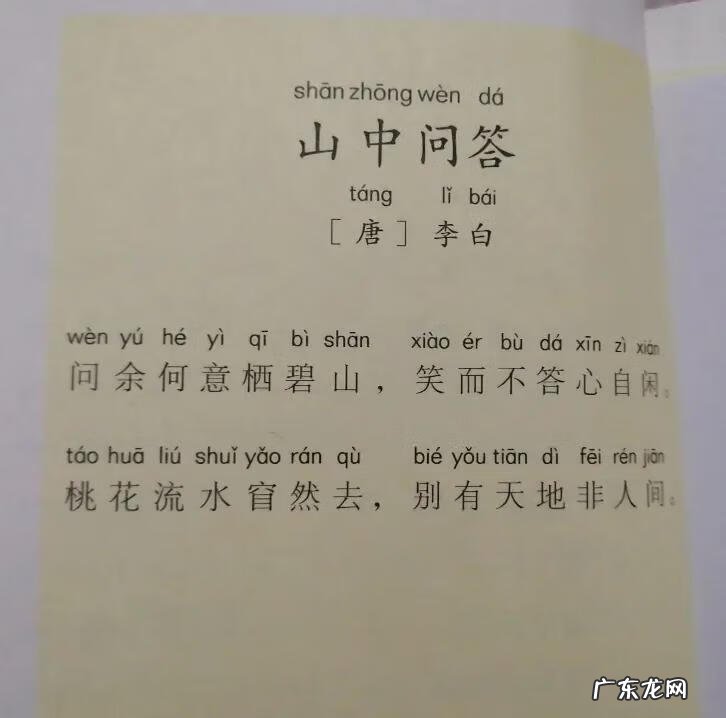 shān zhōng wèn dá
山中问答
táng lǐ bái
［唐］李白
wèn yú hé yì qī bì shān xiào ér bù dá xīn zì xián
问余何意栖碧山，笑而不答心自闲。
táo huā liú shuǐ yǎo rán qù bié yǒu tiān dì fēi rén jiān
桃花流水窅然去，别有天地非人间。
广东龙网